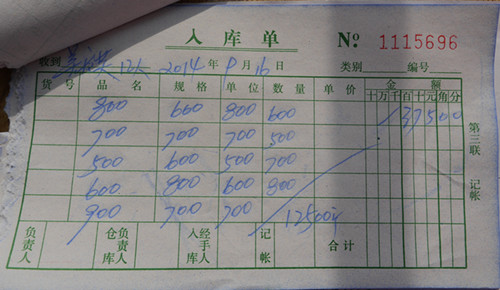 入库单 No 1115696
收到 2014年9月16日 类别 编号
货号 品名 规格 单位 数量 单价 金额
十万千百十元角分
800 600 800 600 37500
700 700 700 500
500 600 500 700
600 800 600 800
900 700 700 12500
负责人 仓库负责人 经手人入库 记帐 合计
第三联 记帐